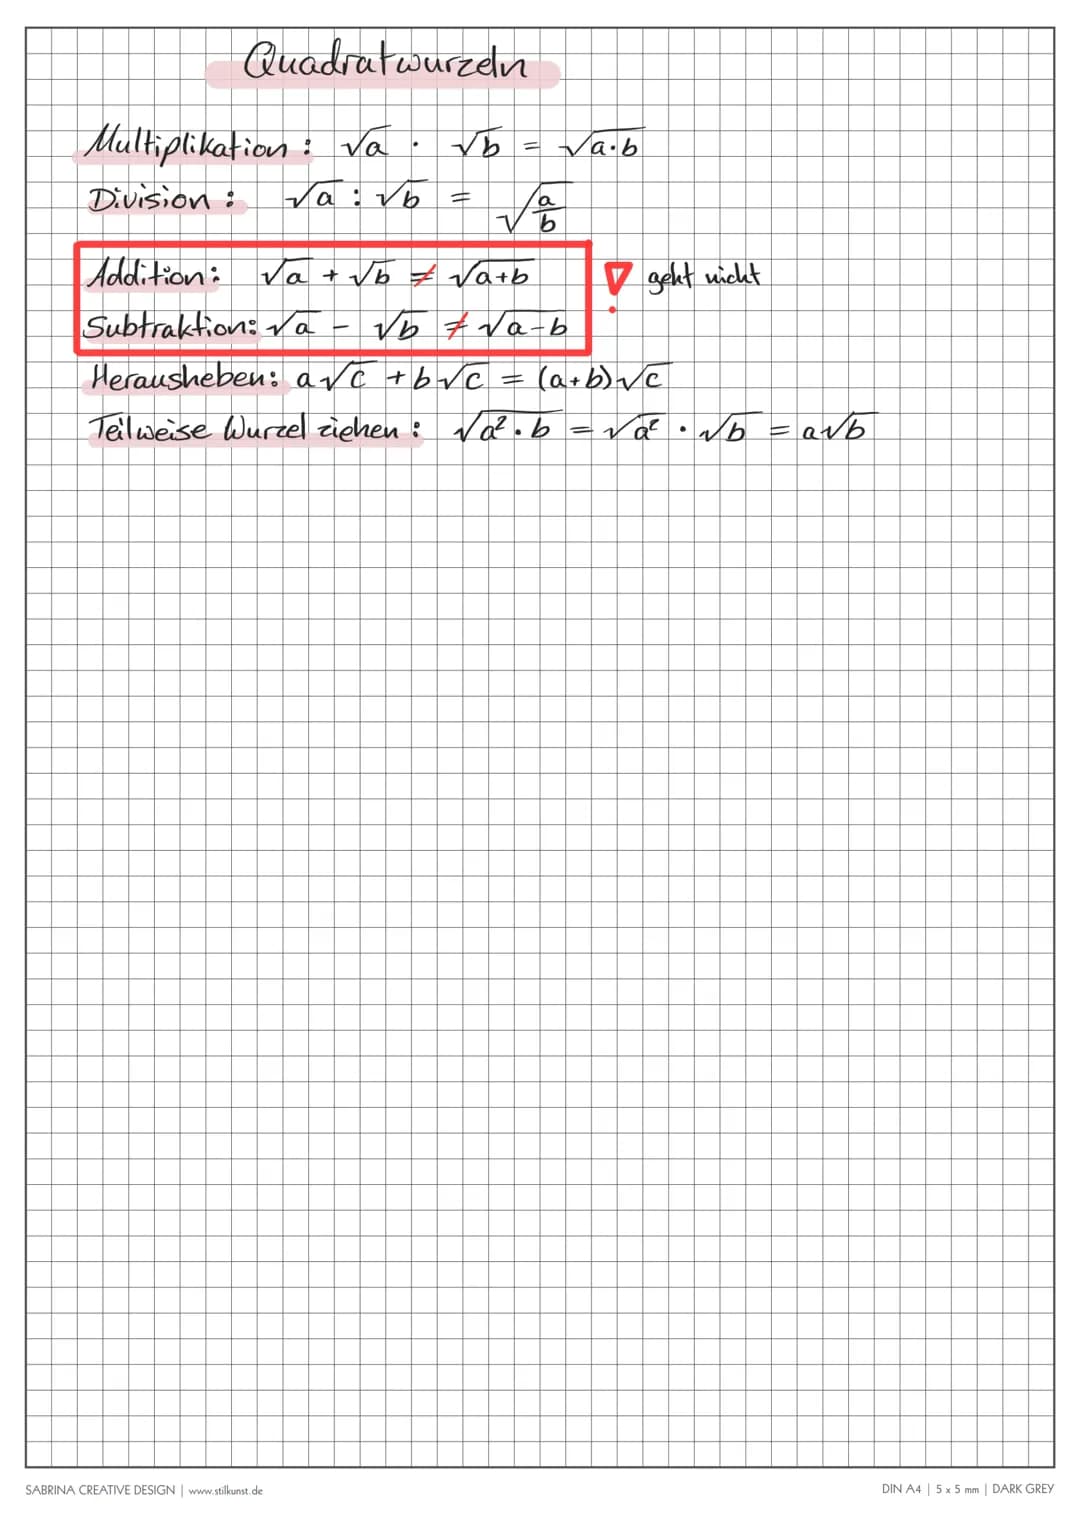 Quadratwurzeln
Multiplikation: √a · √b = √a·b
Division: √a : √b = √a/b
Addition: √a + √b ≠ √a+b ! geht nicht
Subtraktion: √a - √b ≠ √a-b
Herausheben: a√c + b√c = (a+b)√c
Teilweise Wurzel ziehen: √a²·b = √a² · √b = a√b
SABRINA CREATIVE DESIGN | www.stilkunst.de DIN A4 | 5 x 5 mm | DARK GREY